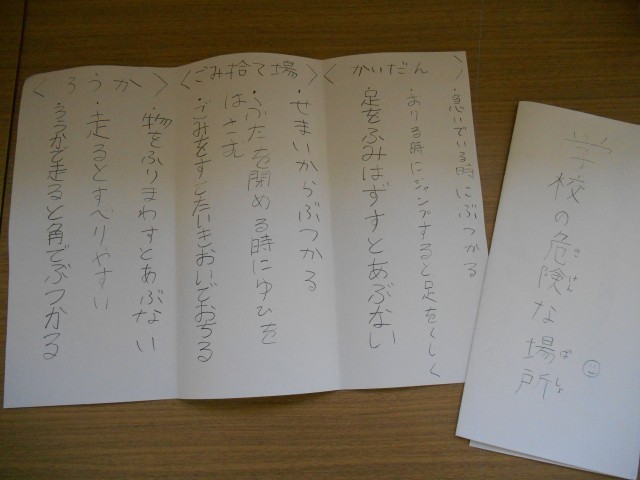 学校の危険な場所
〈かいだん〉
・急いでいる時にぶつかる
・おりる時にジャンプすると足をくじく
・足をふみはずすとあぶない
〈ごみ捨て場〉
・せまいからぶつかる
・ふたを閉める時にゆびを
はさむ
・ごみをすてたいきおいでおちる
〈ろうか〉
・物をふりまわすとあぶない
・走るとすべりやすい
・ろうかを走ると角でぶつかる